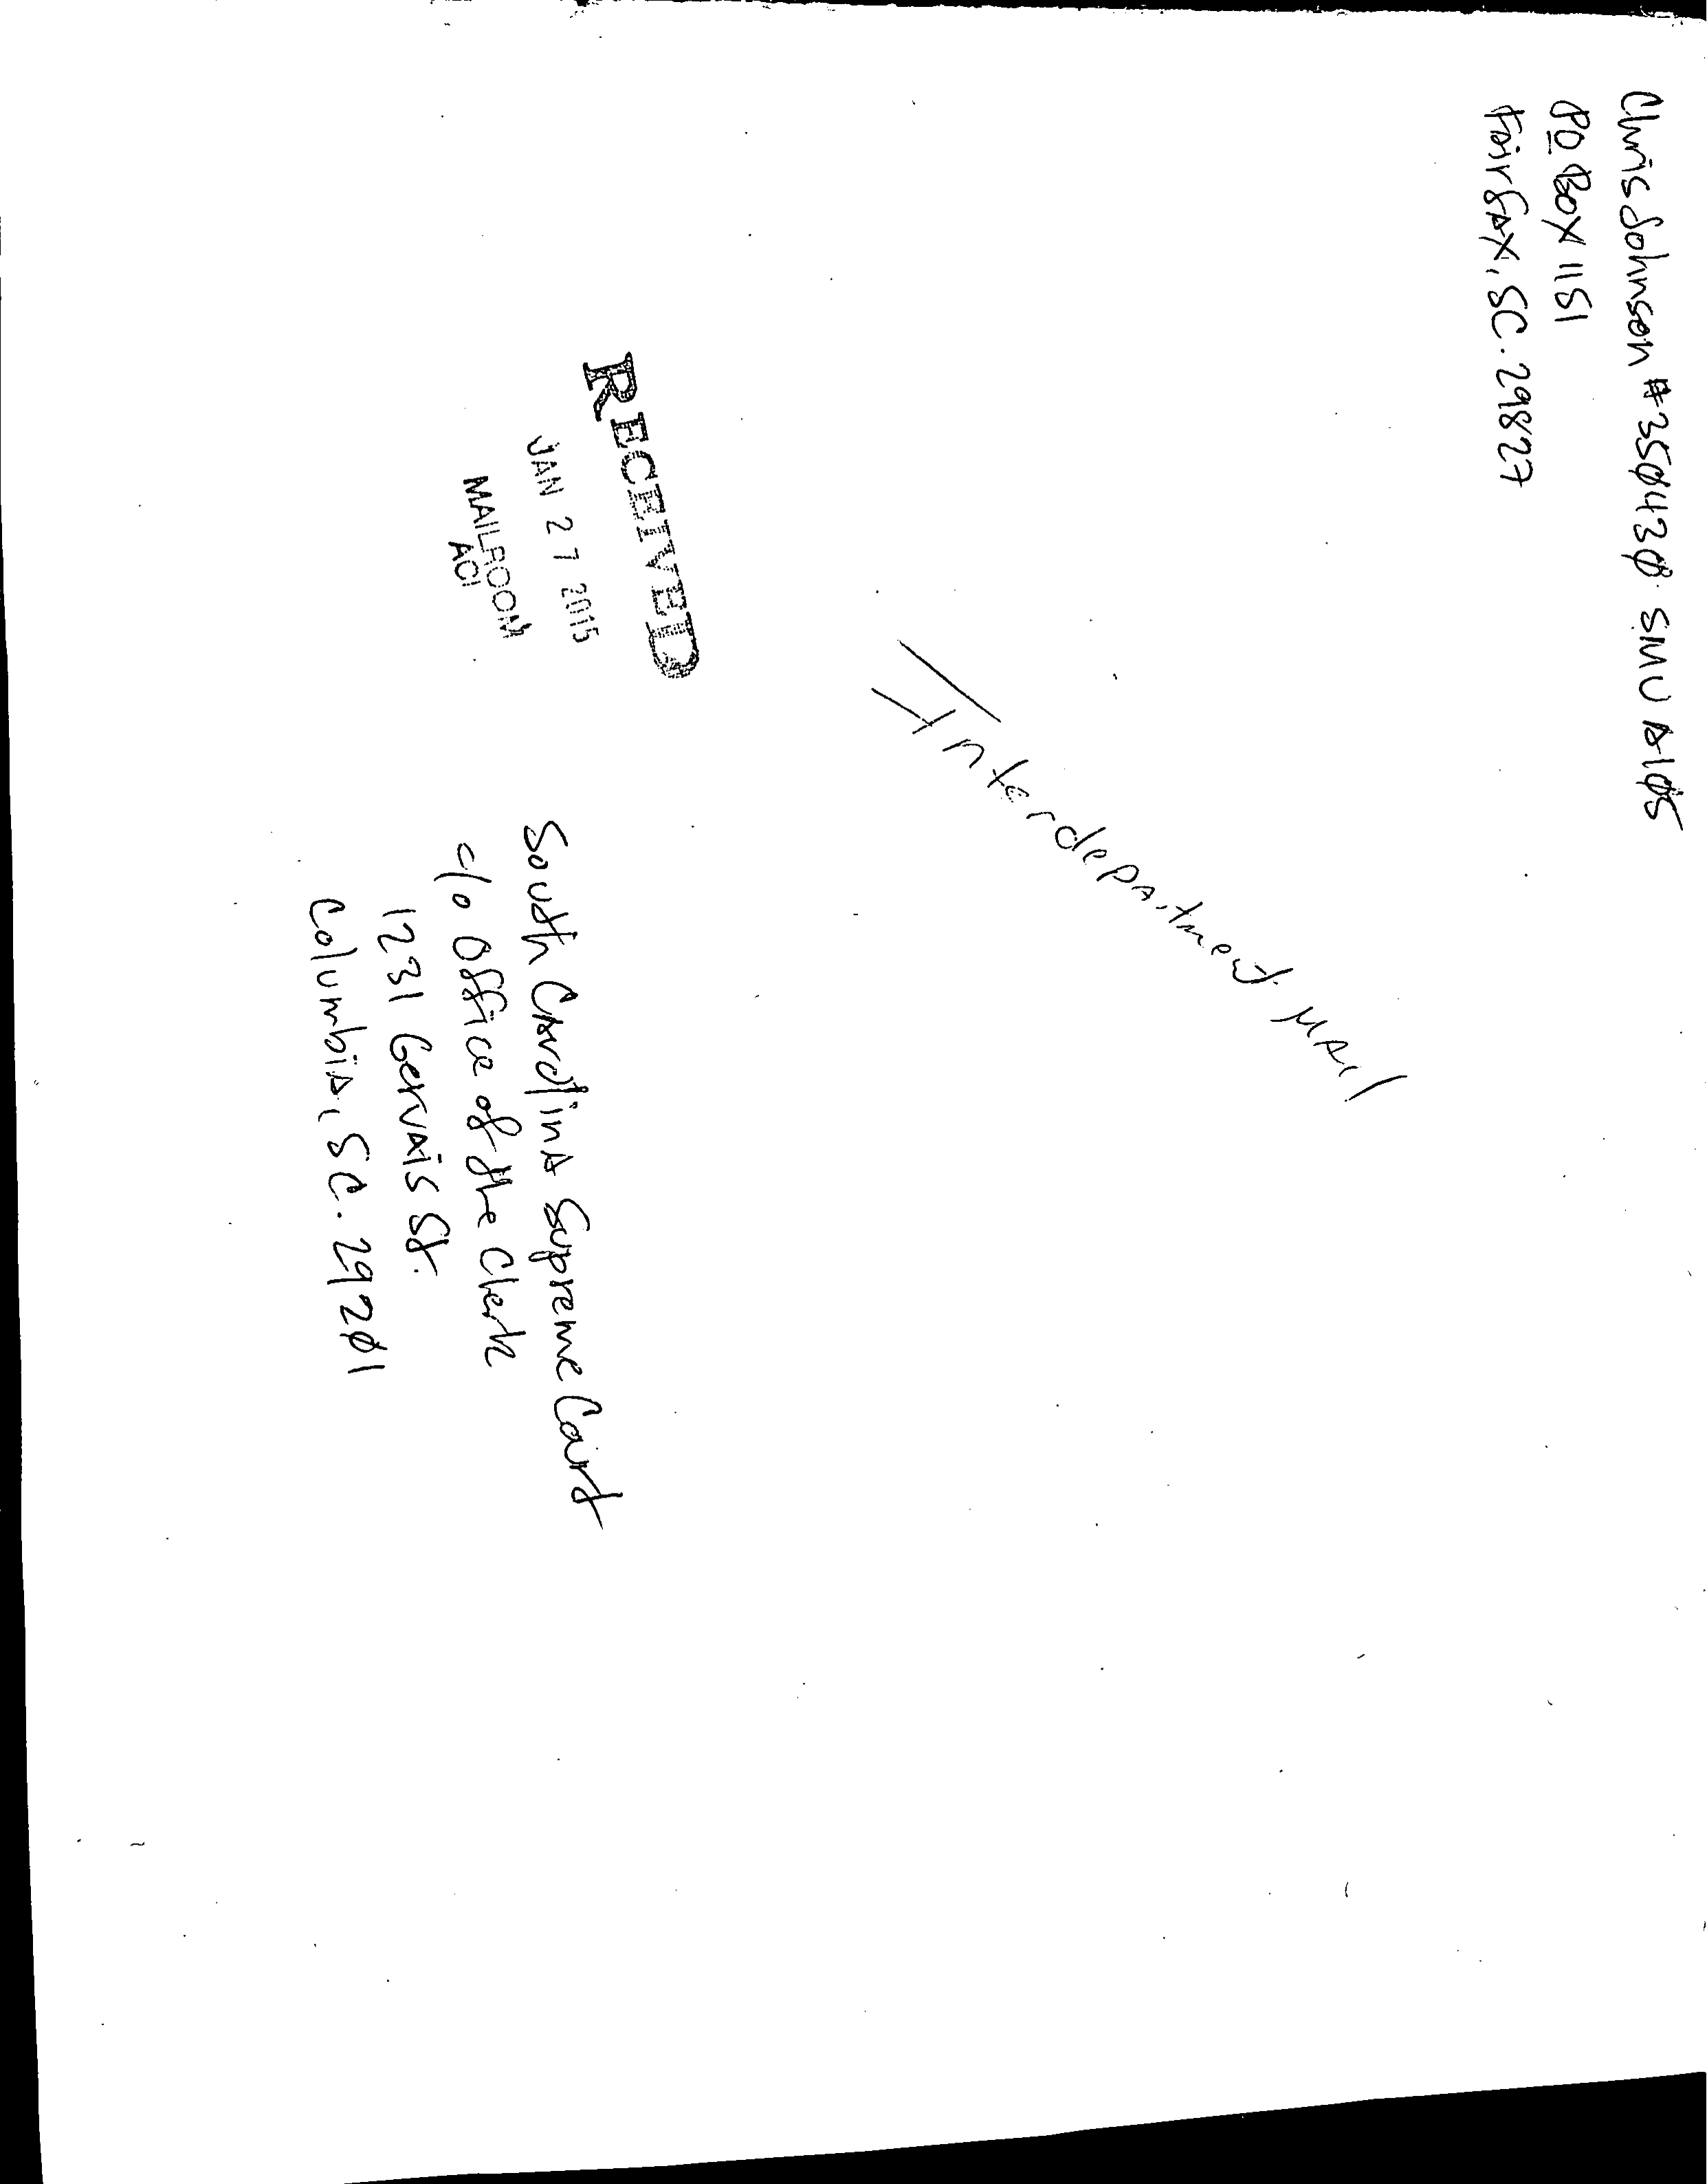 Chris Johnson #350430 SMU A105
PO Box 1151
Fairfax, SC. 29827
Interdepartment Mail
RECEIVED
JAN 27 2015
MAILROOM
ACI
South Carolina Supreme Court
c/o Office of the Clerk
1231 Gervais St.
Columbia, SC. 29201